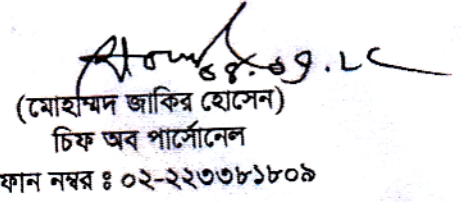 (মোহাম্মদ জাকির হোসেন)
চিফ অব পার্সোনেল
ফোন নম্বর ঃ ০২-২২৩৩৮১৮০৯